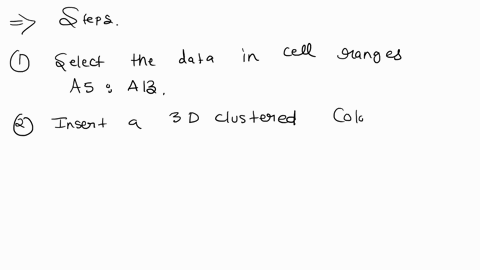 ⇒ Steps.
① Select the data in cell ranges
A5 : A13.
② Insert a 3D clustered Col